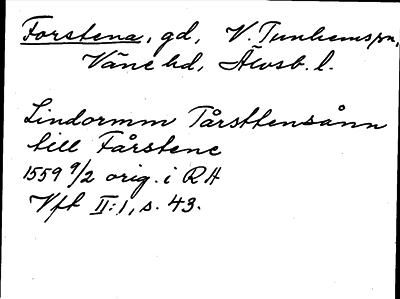 Forstena, gd, V. Tunhems sn,
Väne hd, Älvsb. l.
Lindormm Tårsttensånn
till Fårstene
1559 9/2 orig. i RA
Vft II:1, s. 43.